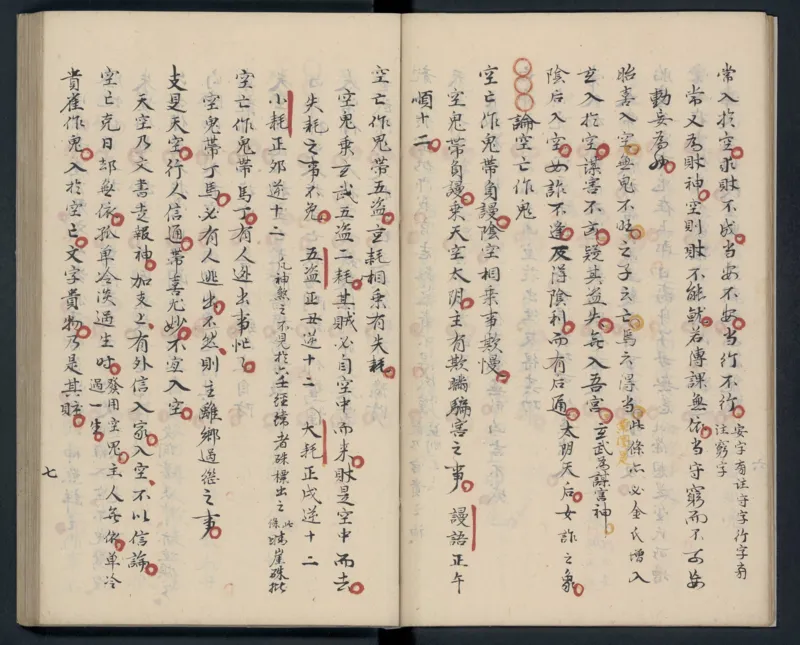 常入於空求財不成当安不安当行不行安字有註守字行字有註窮字
常又為財神空則財不能就若傳課無依当守窮而不可妄
動妄為妙
貽喜入空無鬼不旺之子云亡馬云得当此條亦必金氏增入
玄入於空謀害不可疑其盜失無入吾宮玄武為謀害神
陰后入空女詐不逢及得陰利而有后通太陰天后女詔之象
論空亡作鬼
空亡作鬼帶負謾陰空相乘事欺慢
空鬼帶負謾乘天空太陰主有欺瞞騙害之事 謾語正午
順十二
空亡作鬼帶五盜玄耗相乘有失耗
空鬼乘玄武五盜二耗其賊必自空中而来財是空中而去
失耗之事不免 五盜正丑逆十二 大耗正戌逆十二
小耗正卯逆十二凡神煞之不見於六壬經緯者硃標出之此條崖硃批
空亡作鬼帶馬丁有人逃出事忙了
空鬼帶丁馬必有人逃出不然則主離鄉過愆之事
支是天空行人信通帶喜尤妙不宜入空
天空乃文書走報神加支上有外信入家入空不以信論
空亡克日却無依孤单冷淡過生时過一生發用空鬼主人無依单冷
貴雀作鬼入於空亡文字貴物乃是其賍
七